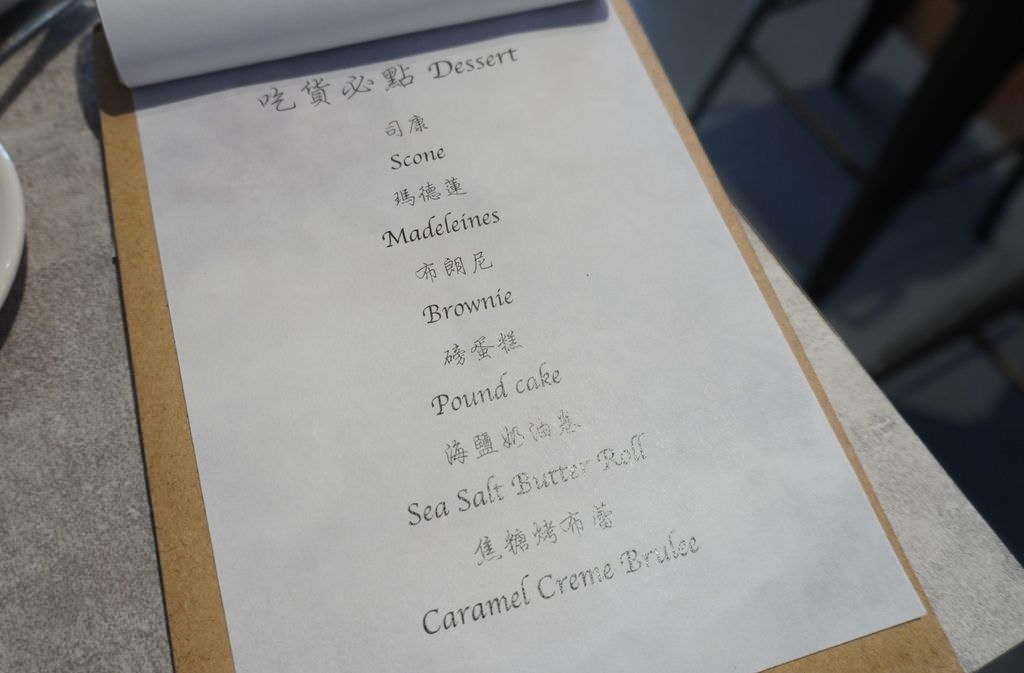 吃貨必點 Dessert
司康
Scone
瑪德蓮
Madeleines
布朗尼
Brownie
磅蛋糕
Pound cake
海鹽奶油卷
Sea Salt Butter Roll
焦糖烤布蕾
Caramel Creme Brulee